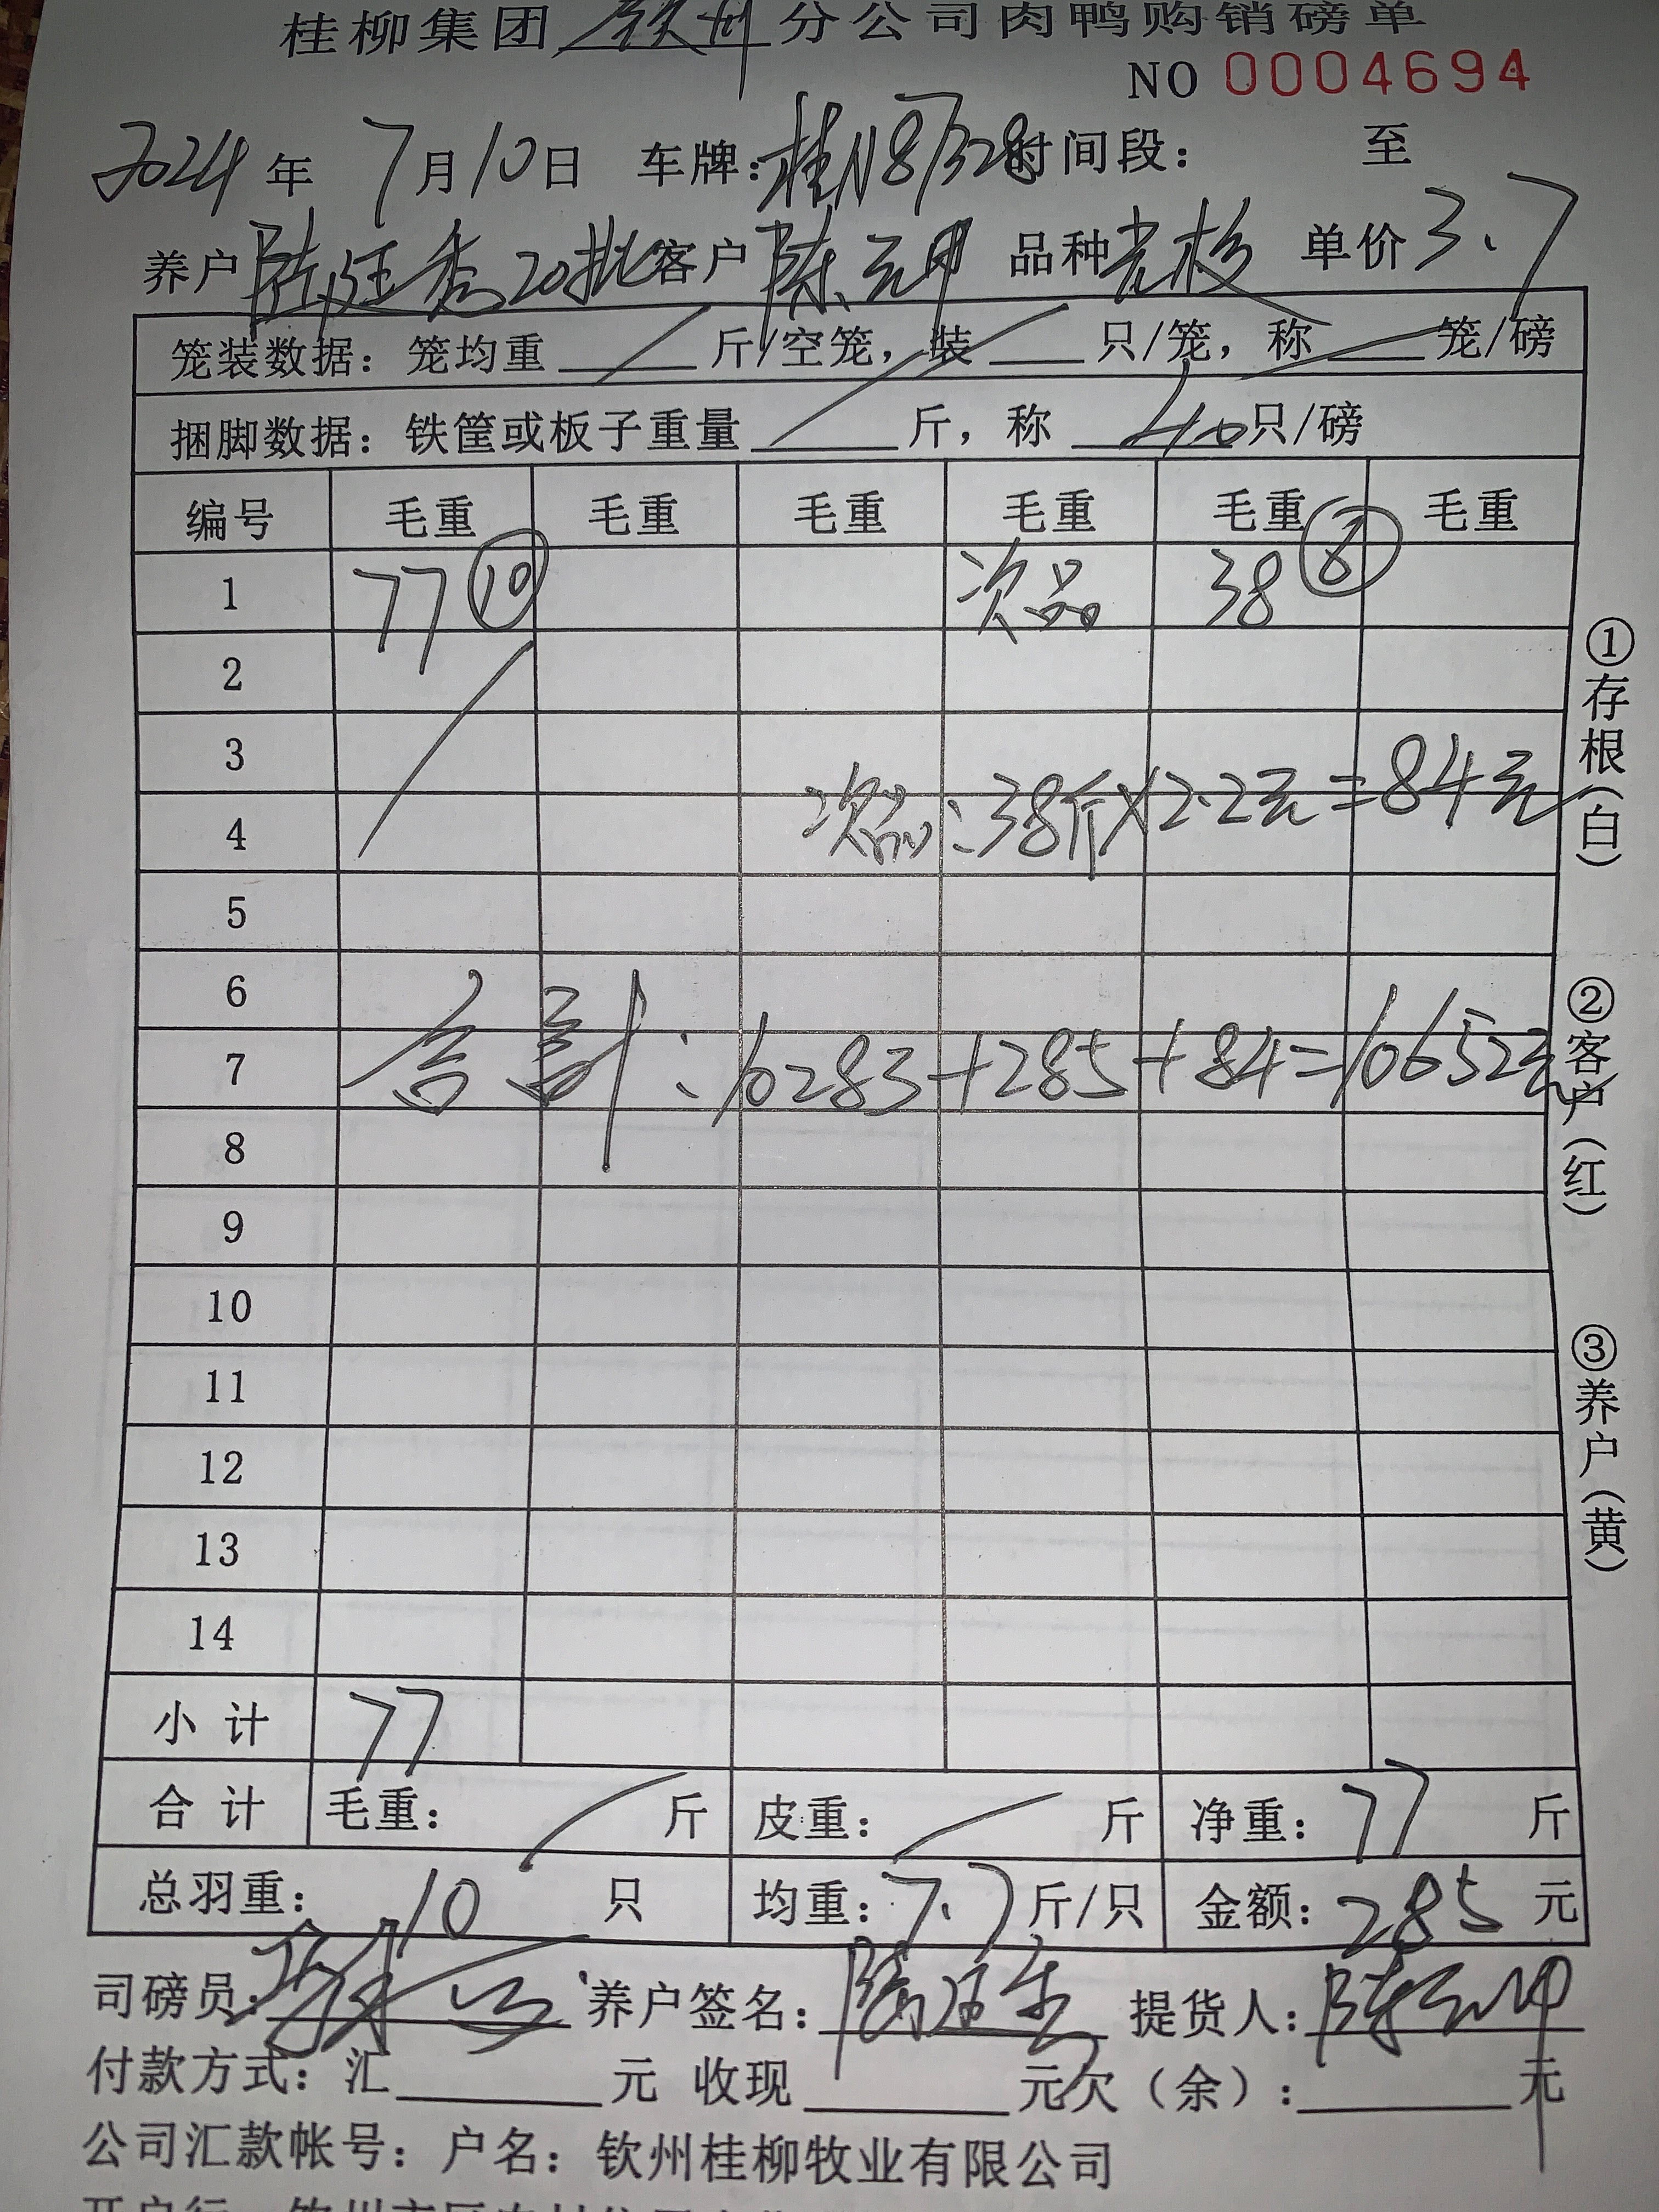 桂柳集团 钦州 分公司肉鸭购销磅单
NO 0004694
2024年 7月10日 车牌：桂N87328 时间段： 至
养户 陆廷秀20批 客户 陈元坤 品种 单价 3.7
笼装数据：笼均重 斤/空笼，装 只/笼，称 笼/磅
捆脚数据：铁筐或板子重量 斤，称 40 只/磅
编号 毛重 毛重 毛重 毛重 毛重 毛重
1 77 ⑩ 次品 38 ⑧
2
3
次品：38斤×2.2元=84元
4
5
6
合计：10283+285+84=10652元
7
8
9
10
11
12
13
14
小计 77
合计 毛重： 斤 皮重： 斤 净重：77 斤
总羽重：10 只 均重：7.7 斤/只 金额：285 元
司磅员： 养户签名： 提货人：陈元坤
付款方式：汇 元 收现 元欠（余）： 元
公司汇款帐号：户名：钦州桂柳牧业有限公司
①存根（白）
②客户（红）
③养户（黄）